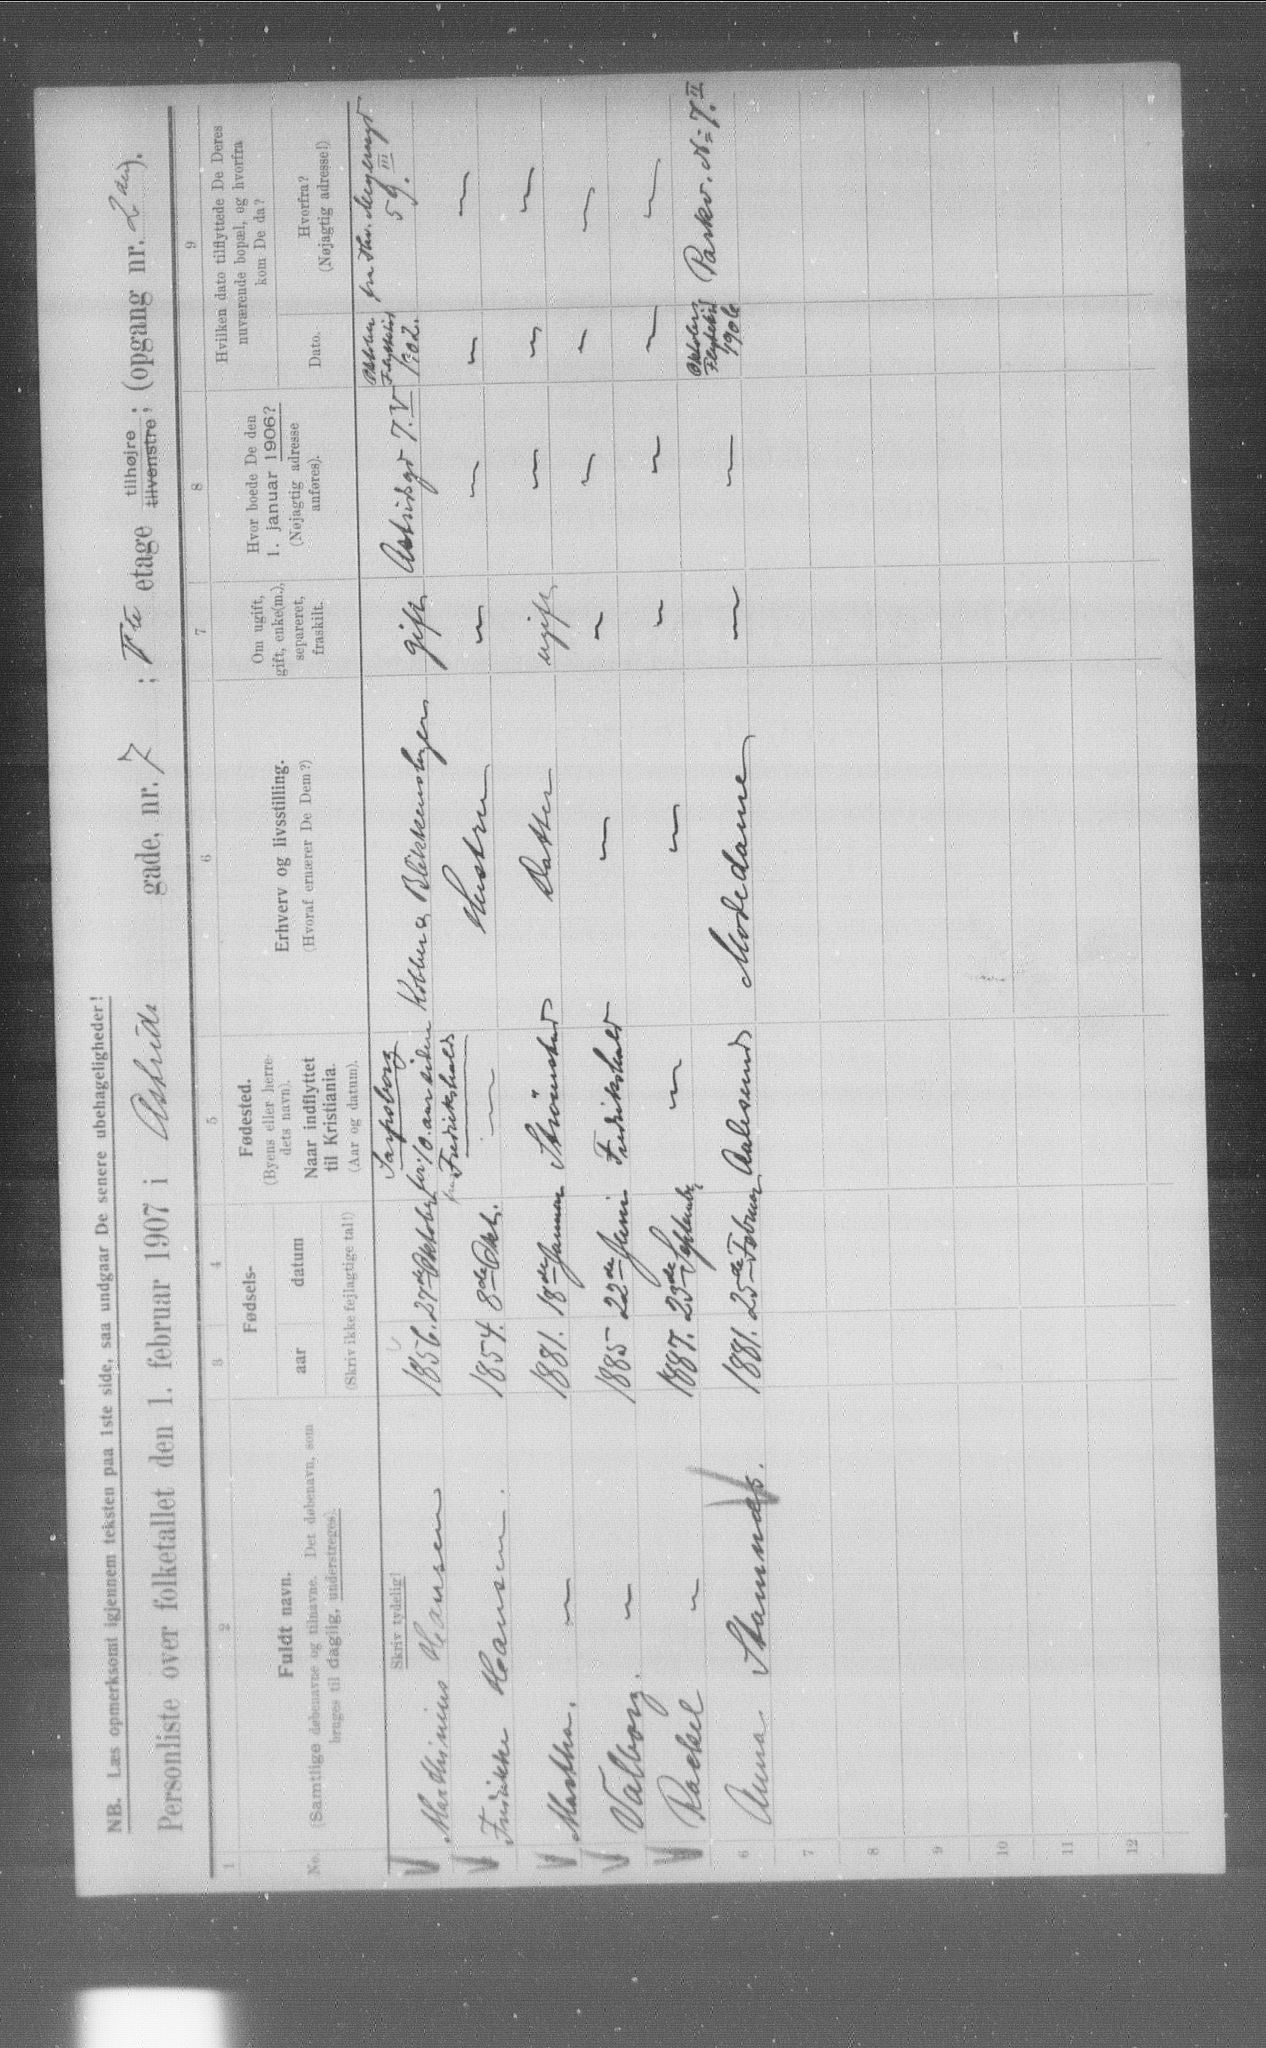 NB. Læs opmerksomt igjennem teksten paa 1ste side, saa undgaar De senere ubehageligheder!
Personliste over folketallet den 1. februar 1907 i Astrids gade, nr. 7 ; Vte etage tilhøjre ; tilvenstre; (opgang nr. 2den).
1 2 3 4 5 6 7 8 9
No.
Fuldt navn.
(Samtlige døbenavne og tilnavne. Det døbenavn, som
bruges til daglig, understreges).
Fødsels-
aar datum
(Skriv ikke fejlagtige tal!)
Fødested.
(Byens eller herre-
dets navn).
Naar indflyttet
til Kristiania.
(Aar og datum).
Erhverv og livsstilling.
(Hvoraf ernærer De Dem?)
Om ugift,
gift, enke(m.),
separeret,
fraskilt.
Hvor boede De den
1. januar 1906?
(Nøjagtig adresse
anføres).
Hvilken dato tilflyttede De Deres
nuværende bopæl, og hvorfra
kom De da?
Dato.
Hvorfra?
(Nøjagtig adresse!)
Skriv tydelig!
Marthinius Hansen 1856. 27de Oktober Sarpsborg for 10. aar siden fra Fredrikshald Kobber & Blikkenslager gift Astridsgd 7. V Oktober Flyttetid 1902. fra Thv. Meyersgt. 59. III
Fredrikke Hansen. 1854. 8de Okt. — Hustru — — — —
Martha. — 1881. 18de Januar Strömstad Datter ugift — — —
Valborg. — 1885 22de Juni Fredrikshald — — — — —
Rackel — 1887. 23de September — — — — — —
6 Anna Stamnæs. 1881. 25de Februar Aalesund Modedame — — Oktober Flyttetid 1906 Parkv. No 7. II
7
8
9
10
11
12